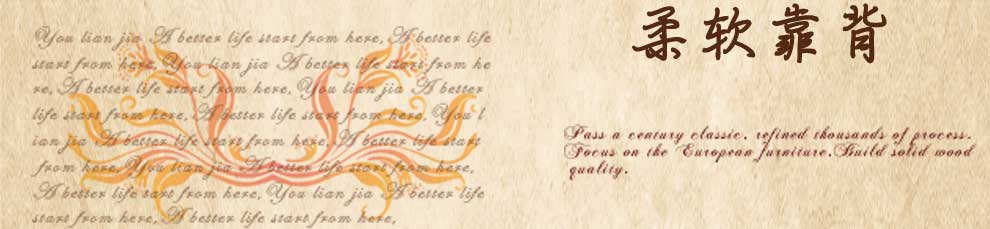 You lian jia A better life start from here, A better life
start from here, You lian jia A better life start from he
re, A better life start from here, You lian jia A better
life start from here, A better life start from here, You l
ian jia A better life start from here, A better life start
from here, You lian jia A better life start from here,
A better life start from here, You lian jia A better life
start from here, A better life start from here,
柔软靠背
Pass a century classic, refined thousands of process.
Focus on the European furniture, Build solid wood
quality.